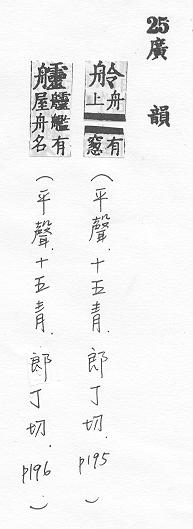 25 廣韻
舲 舟上有窓 (平聲.十五青.郎丁切.p195)
艦有屋舟名 (平聲.十五青.郎丁切.p196)